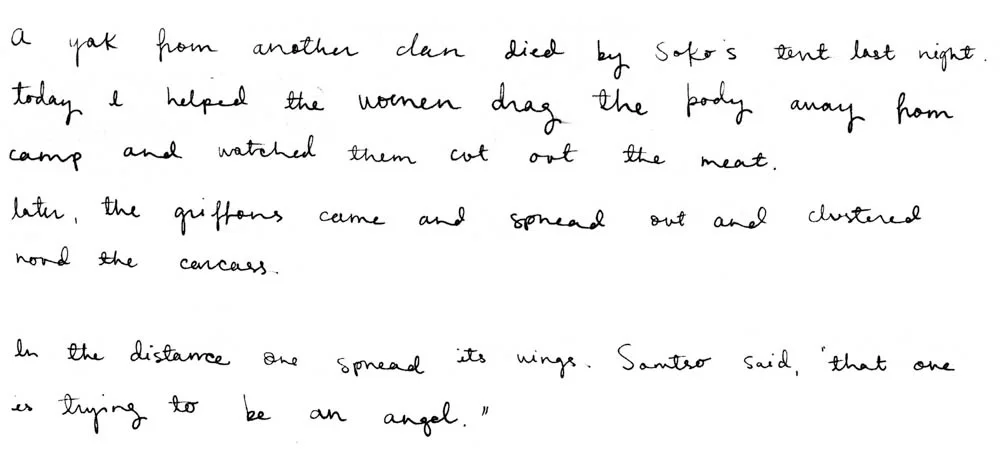 a yak from another clan died by Soko's tent last night.
today I helped the women drag the body away from
camp and watched them cut out the meat.
later, the griffons came and spread out and clustered
round the carcass.
In the distance one spread its wings. Samtso said, "that one
is trying to be an angel."